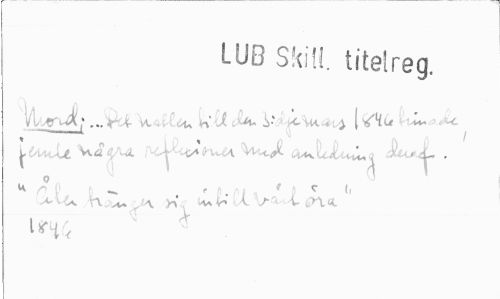 LUB Skill. titelreg.
Mord; ... Det natten till den 3:dje mars 1846 timade
jemte några reflexioner med anledning deraf.
"Åter tränger sig intill vårt öra"
1846